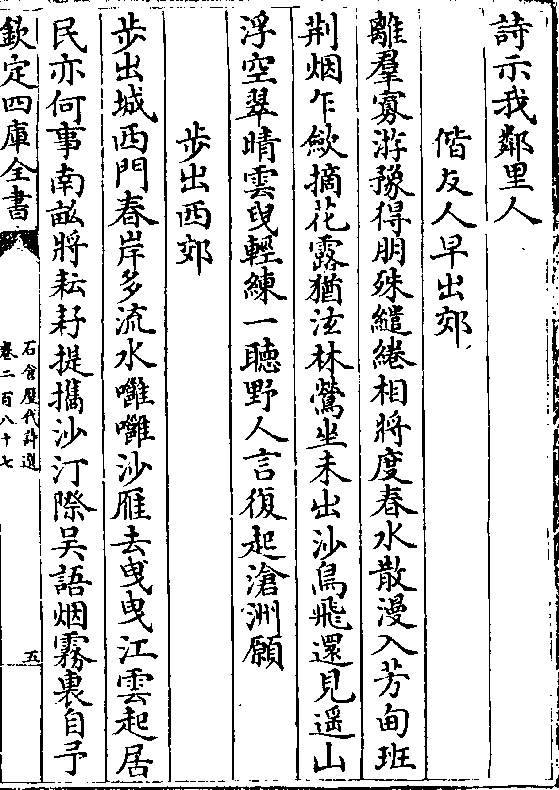 詩示我鄰里人
偕友人早出郊
離羣寡游豫得朋殊繾綣相將度春水散漫入芳甸班
荆烟乍歛摘花露猶泫林鶯坐未出沙鳥飛還見遥山
浮空翠晴雲曳輕練一聴野人言復起滄洲願
步出西郊
步出城西門春岸多流水囉囉沙雁去曳曳江雲起居
民亦何事南畝將耘耔提攜沙汀際吳語烟霧裏自予
欽定四庫全書
石倉歷代詩選
卷二百八十七
五